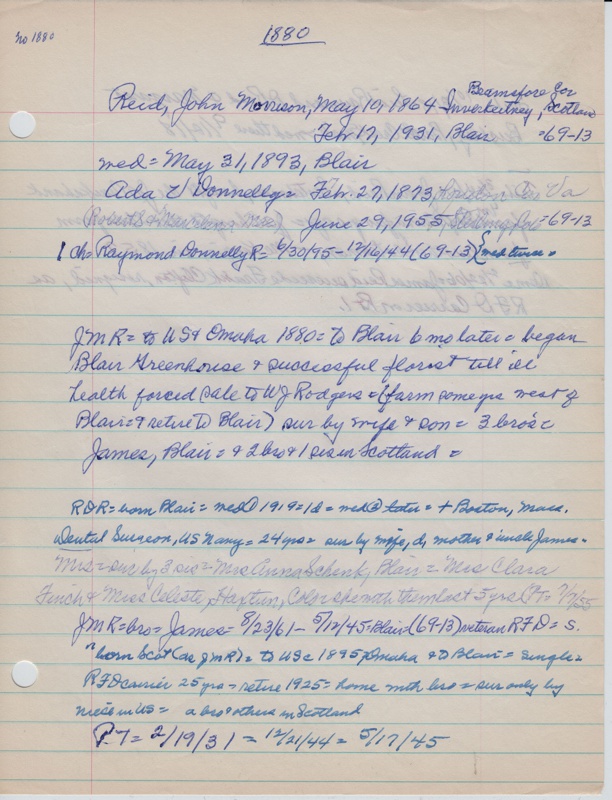 no 1880
1880
Beamsfore for
Reid, John Morrison, May 10, 1864 Inverkeitney, Scotland
Feb 17, 1931, Blair =69-13
med= May, 31, 1893, Blair
Ada V Donnelly= Feb. 27, 1873, Va
June 29, 1955, =69-13
1 ch= Raymond Donnelly R= 6/30/95-12/16/44 (69-13) {med twice=
JMR= to US & Omaha 1880= to Blair 6 mo later= began
Blair Greenhouse & successful florist till ill
health forced sale to WJ Rodgers= (farm some yrs west of
Blair= & retire to Blair) sur by wife & son= 3 bros=
James, Blair= & 2 bro & 1 sis in Scotland=
RDR= born Blair= med① 1919=1d= med② later= + Boston, Mass.
Dental Surgeon, US Navy= 24 yrs= sur by wife, d, mother & uncle James=
Mrs= sur by 3 sis= Mrs Anna Schenk, Blair= Mrs Clara
Finch & Miss Celeste, Haxtun, Colo= she with them last 5 yrs (PT= 7/7/55
JMR=bro= James= 8/23/61-5/12/45=Blair (69-13) veteran RFD= s.
" born Scot (as JMR)= to US 1895, Omaha & to Blair= single=
RFD carrier 25 yrs= retire 1925= home with bro= sur only by
niece in US= a bro & others in Scotland
P.T= 2/19/31= 12/21/44= 5/17/45